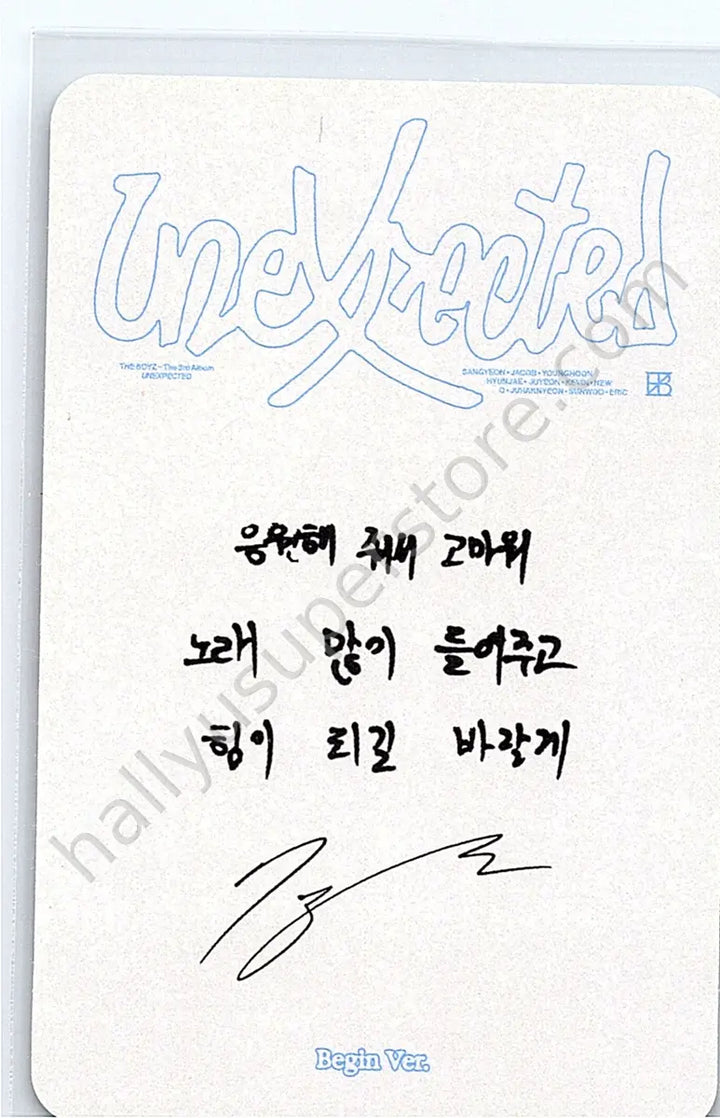 Unexpected
THE BOYZ – The 3rd Album
UNEXPECTED
SANGYEON • JACOB • YOUNGHOON
HYUNJAE • JUYEON • KEVIN • NEW
Q • JUHAKNYEON • SUNWOO • ERIC
응원해 줘서 고마워
노래 많이 들어주고
힘이 되길 바랄게
Begin Ver.
hallyusuperstore.com